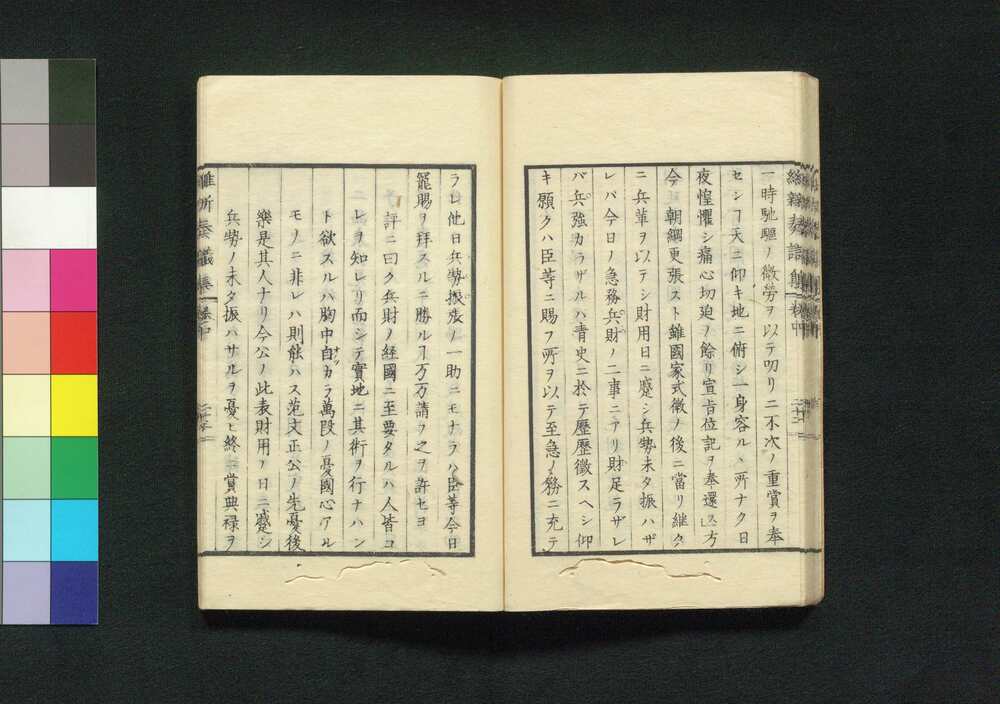 一時馳驅ノ微勞ヲ以テ叨リニ不次ノ重賞ヲ奉
セシヿ天ニ仰キ地ニ俯シ一身容ルヽ所ナク日
夜惶懼シ痛心切廹ノ餘リ宣旨位記ヲ奉還ス方
今 朝綱更張スト雖國家式微ノ後ニ當リ継クニ
兵革ヲ以テシ財用日ニ蹙シ兵勢未タ振ハザ
レバ今日ノ急務兵財ノ二事ニアリ財足ラザレ
バ兵強カラザルハ青史ニ於テ歷歷徵スヘシ仰
キ願クハ臣等ニ賜フ所ヲ以テ至急ノ務ニ充テ
ラレ他日兵勢振張ノ一助ニモナラハ臣等今日
寵賜ヲ拜スルニ勝ルヿ万万請フ之ヲ許セヨ
評ニ曰ク兵財ノ経國ニ至要タルハ人皆コ
レヲ知レリ而シテ實地ニ其術ヲ行ナハン
ト欲スルハ胸中自カラ萬段ノ憂國心アル
モノニ非レハ則能ハス范文正公ノ先憂後
樂是其人ナリ今公ノ此表財用ノ日ニ蹙シ
兵勢ノ未タ振ハサルヲ憂ヒ終ニ賞典禄ヲ